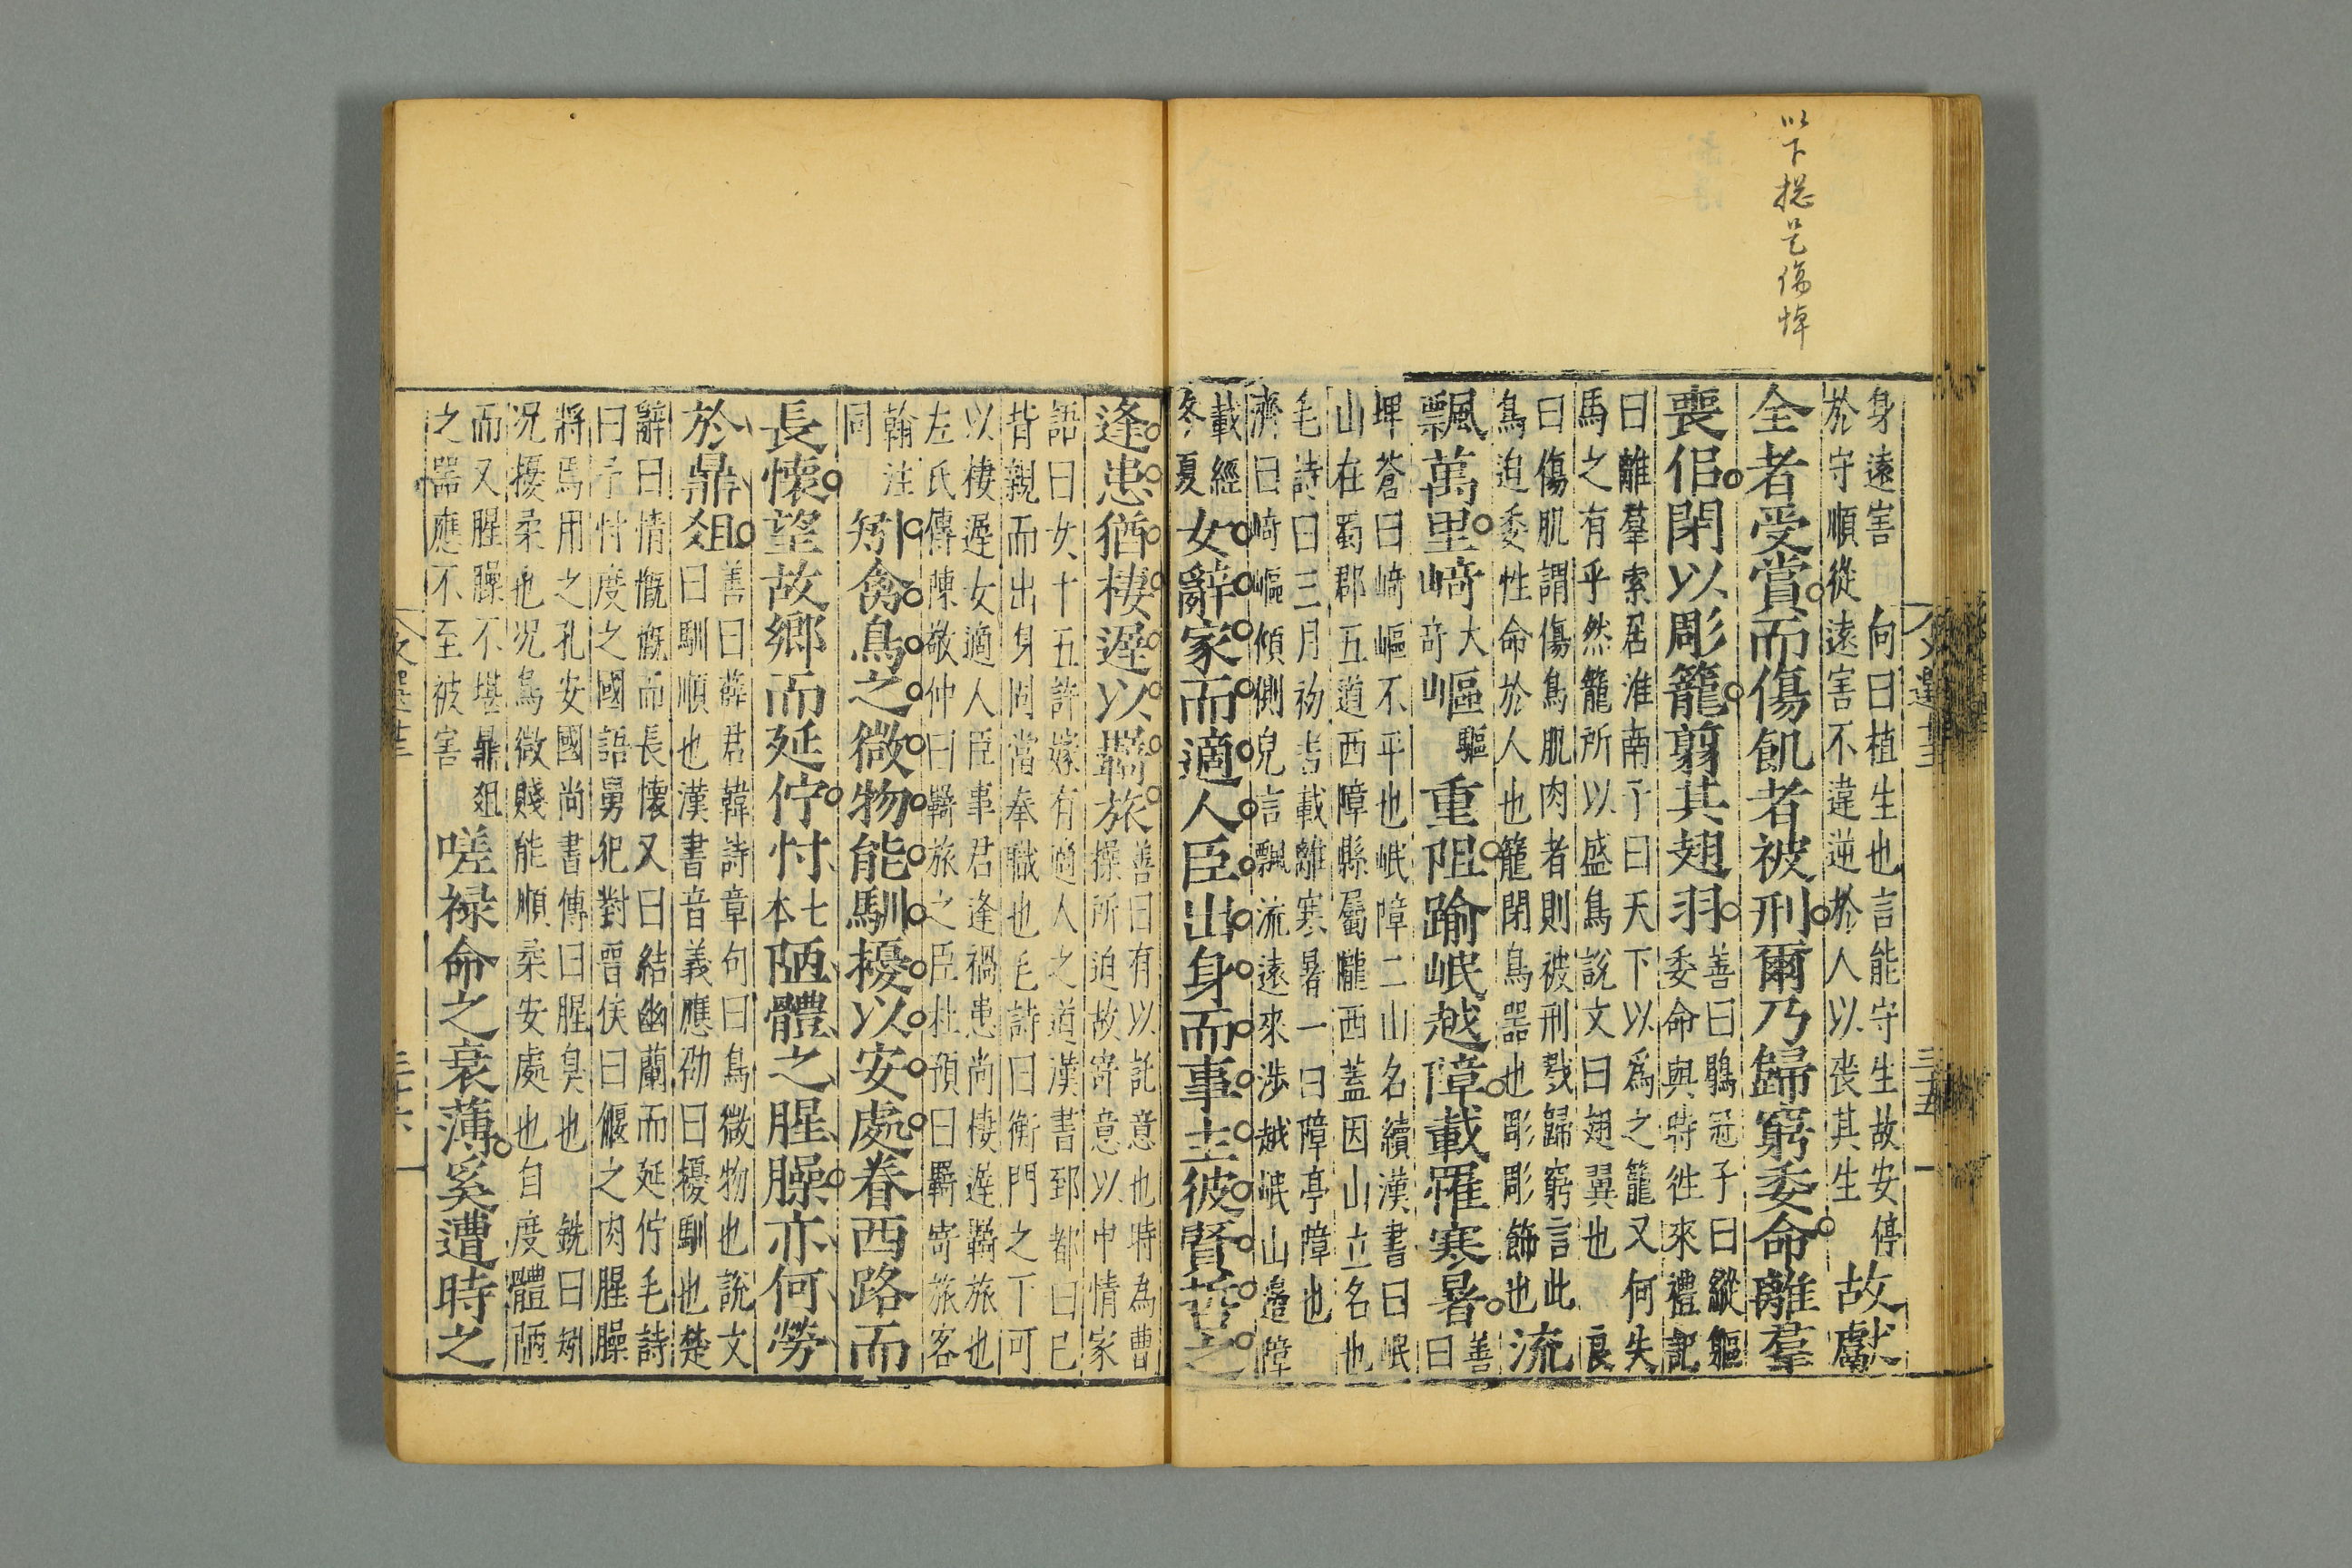 以下摠是傷悼
身遠害　向曰植生也言能守生故安停
於守順從遠害不違逆於人以喪其生
故獻
全者受賞而傷飢者被刑爾乃歸窮委命離羣
喪侶閉以彫籠翦其翅羽
善曰鶡冠子曰縱軀
委命與時徃來禮記
曰離羣索居淮南子曰天下以爲之籠又何失
馬之有乎然籠所以盛鳥說文曰翅翼也　良
曰傷肌謂傷鳥肌肉者則被刑戮歸窮言此
鳥迫委性命於人也籠閉鳥器也彫彫飾也
流
飄萬里崎
大
奇
嶇
驅
重阻踰岷越障載罹寒暑
善
曰
埤蒼曰崎嶇不平也岷障二山名續漢書曰岷
山在蜀郡五道西障縣屬隴西蓋因山立名也
毛詩曰三月初吉載離寒暑一曰障亭障也
濟曰崎嶇傾側皃言飄流遠來涉越岷山邉障
載經
冬夏
女辭家而適人臣出身而事主彼賢哲之
逢患猶棲遲以羇旅
善曰有以託意也時為曹
操所迫故寄意以申情家
語曰女十五許嫁有適人之道漢書郅都曰已
背親而出身固當奉職也毛詩曰衡門之下可
以棲遲女適人臣事君逢禍患尚棲遲羇旅也
左氏傳陳敬仲曰羇旅之臣杜預曰羇寄旅客
翰注
同
矧禽鳥之微物能馴擾以安處眷西路而
長懷望故鄉而延佇忖
七
本
陋體之腥臊亦何勞
於鼎俎
善曰薛君韓詩章句曰鳥微物也說文
曰馴順也漢書音義應劭曰擾馴也楚
辭曰情慨慨而長懷又曰結幽蘭而延佇毛詩
曰予忖度之國語舅犯對晉侯曰偃之肉腥臊
將焉用之孔安國尚書傳曰腥臭也　銑曰矧
况擾柔也况鳥微賤能順柔安處也自度體陋
而又腥臊不堪鼎俎
之器應不至被害
嗟祿命之衰薄奚遭時之
文選十三
三十五
文選十三
三十六